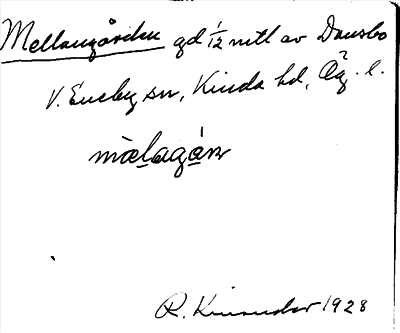 Mellangården gd 1/12 mtl av Dansbo
V. Eneby sn, Kinda hd, Ög. l.
mälagán
R. Kinander 1928